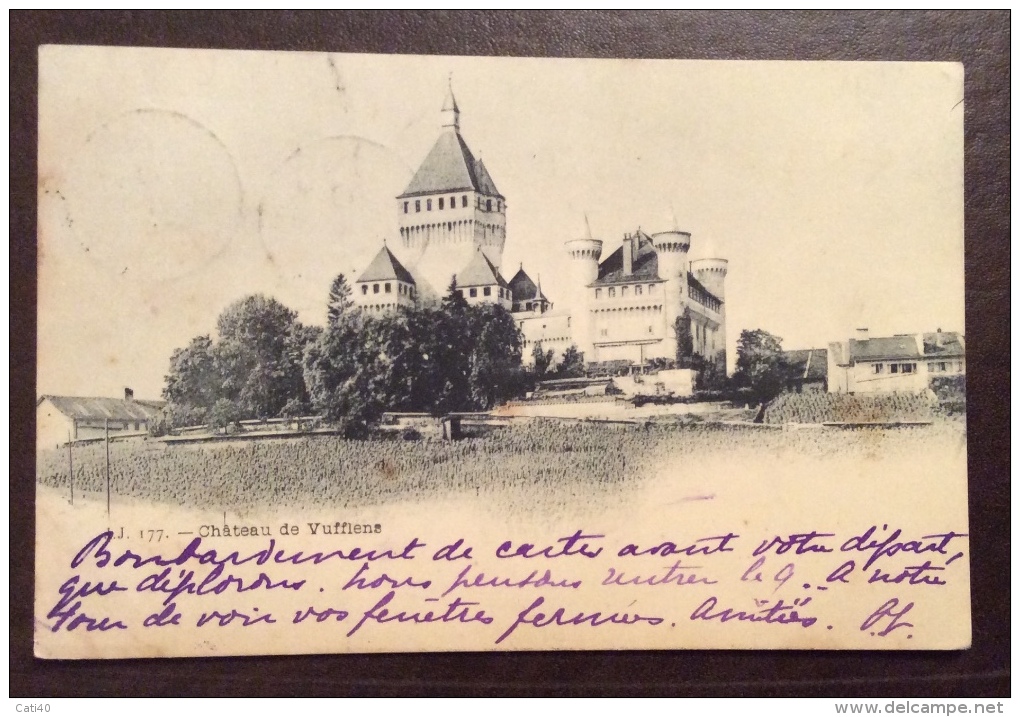 J.J. 177. — Château de Vufflens
Bombardement de cartes avant votre départ,
que déplorons. Nous pensons rentrer le 9. A notre
tour de voir vos fenêtres fermées. Amitiés.
Cati40
www.delcampe.net